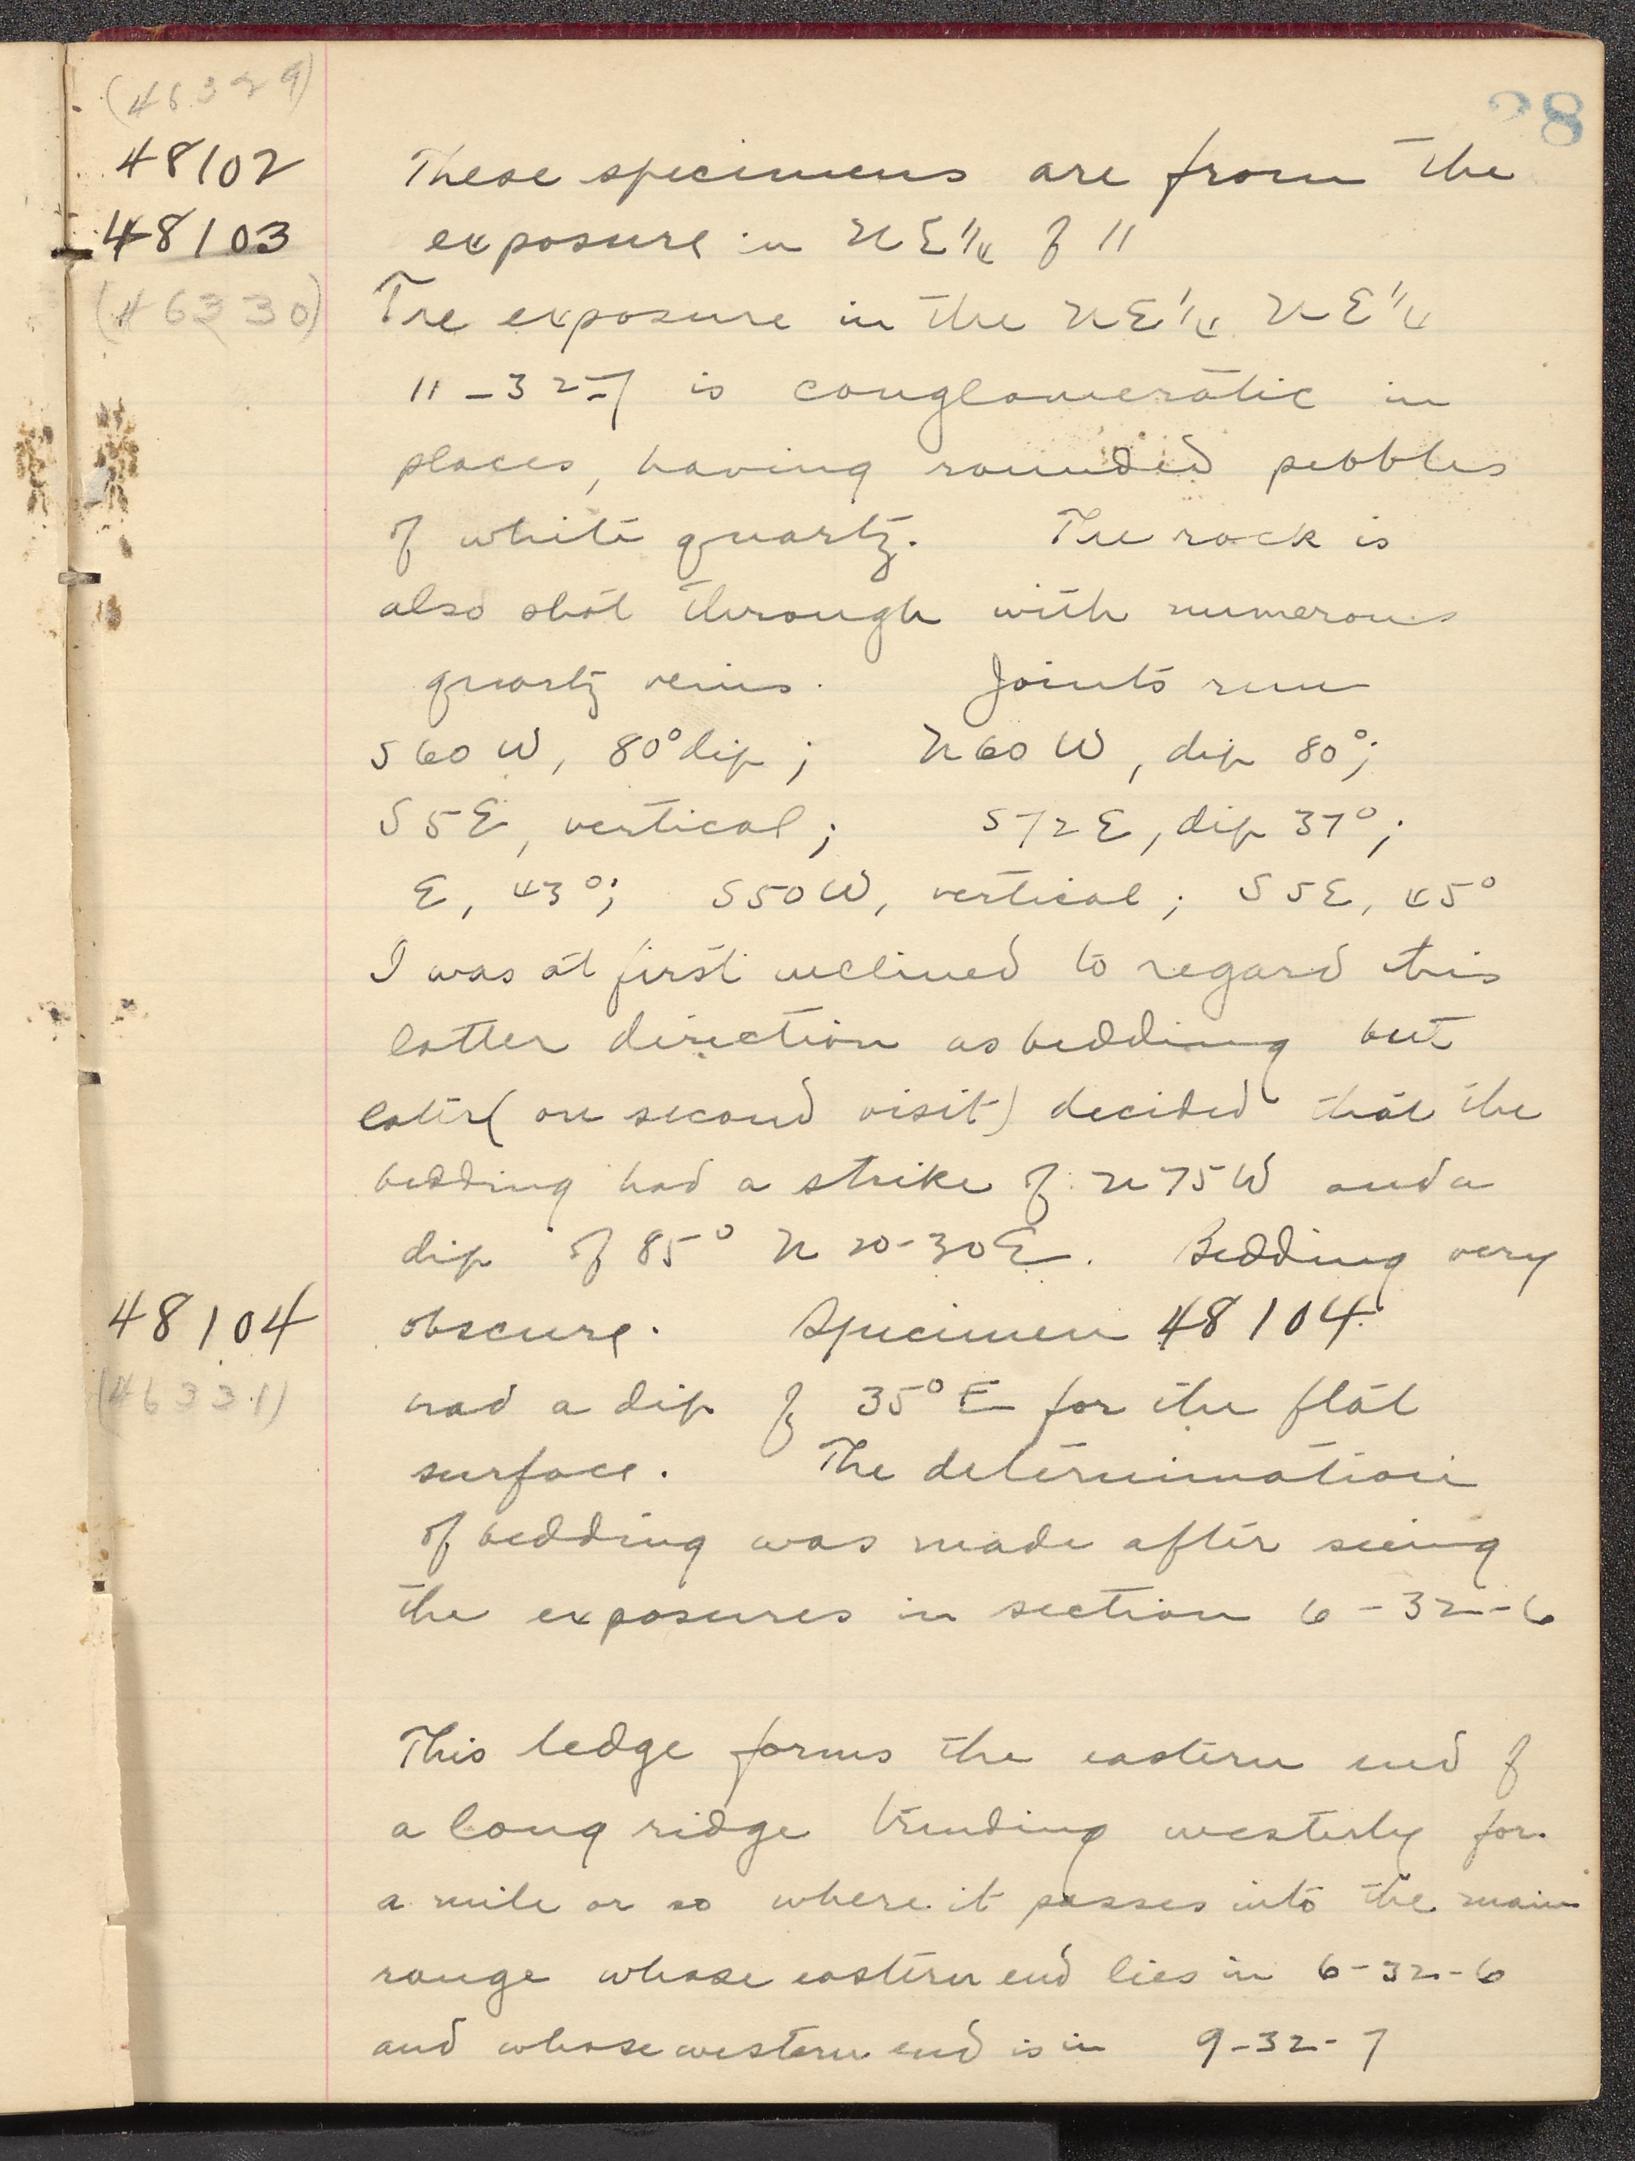 28
(46329)
48102 These specimens are from the
48103 exposure in NE¼ of 11
(46330) The exposure in the NE¼ NE¼
11-32-7 is conglomeratic in
places, having rounded pebbles
of white quartz. The rock is
also shot through with numerous
quartz veins. Joints run
S60W, 80° dip; N60W, dip 80°;
S5E, vertical; S72E, dip 37°;
E, 43°; S50W, vertical; S5E, 45°
I was at first inclined to regard this
latter direction as bedding but
later (on second visit) decided that the
bedding had a strike of N75W and a
dip of 85° N 20-30E. Bedding very
48104 obscure. Specimen 48104
(46331) had a dip of 35° E for the flat
surface. The determination
of bedding was made after seeing
the exposures in section 6-32-6
This ledge forms the eastern end of
a long ridge trending westerly for
a mile or so where it passes into the main
range whose eastern end lies in 6-32-6
and whose western end is in 9-32-7